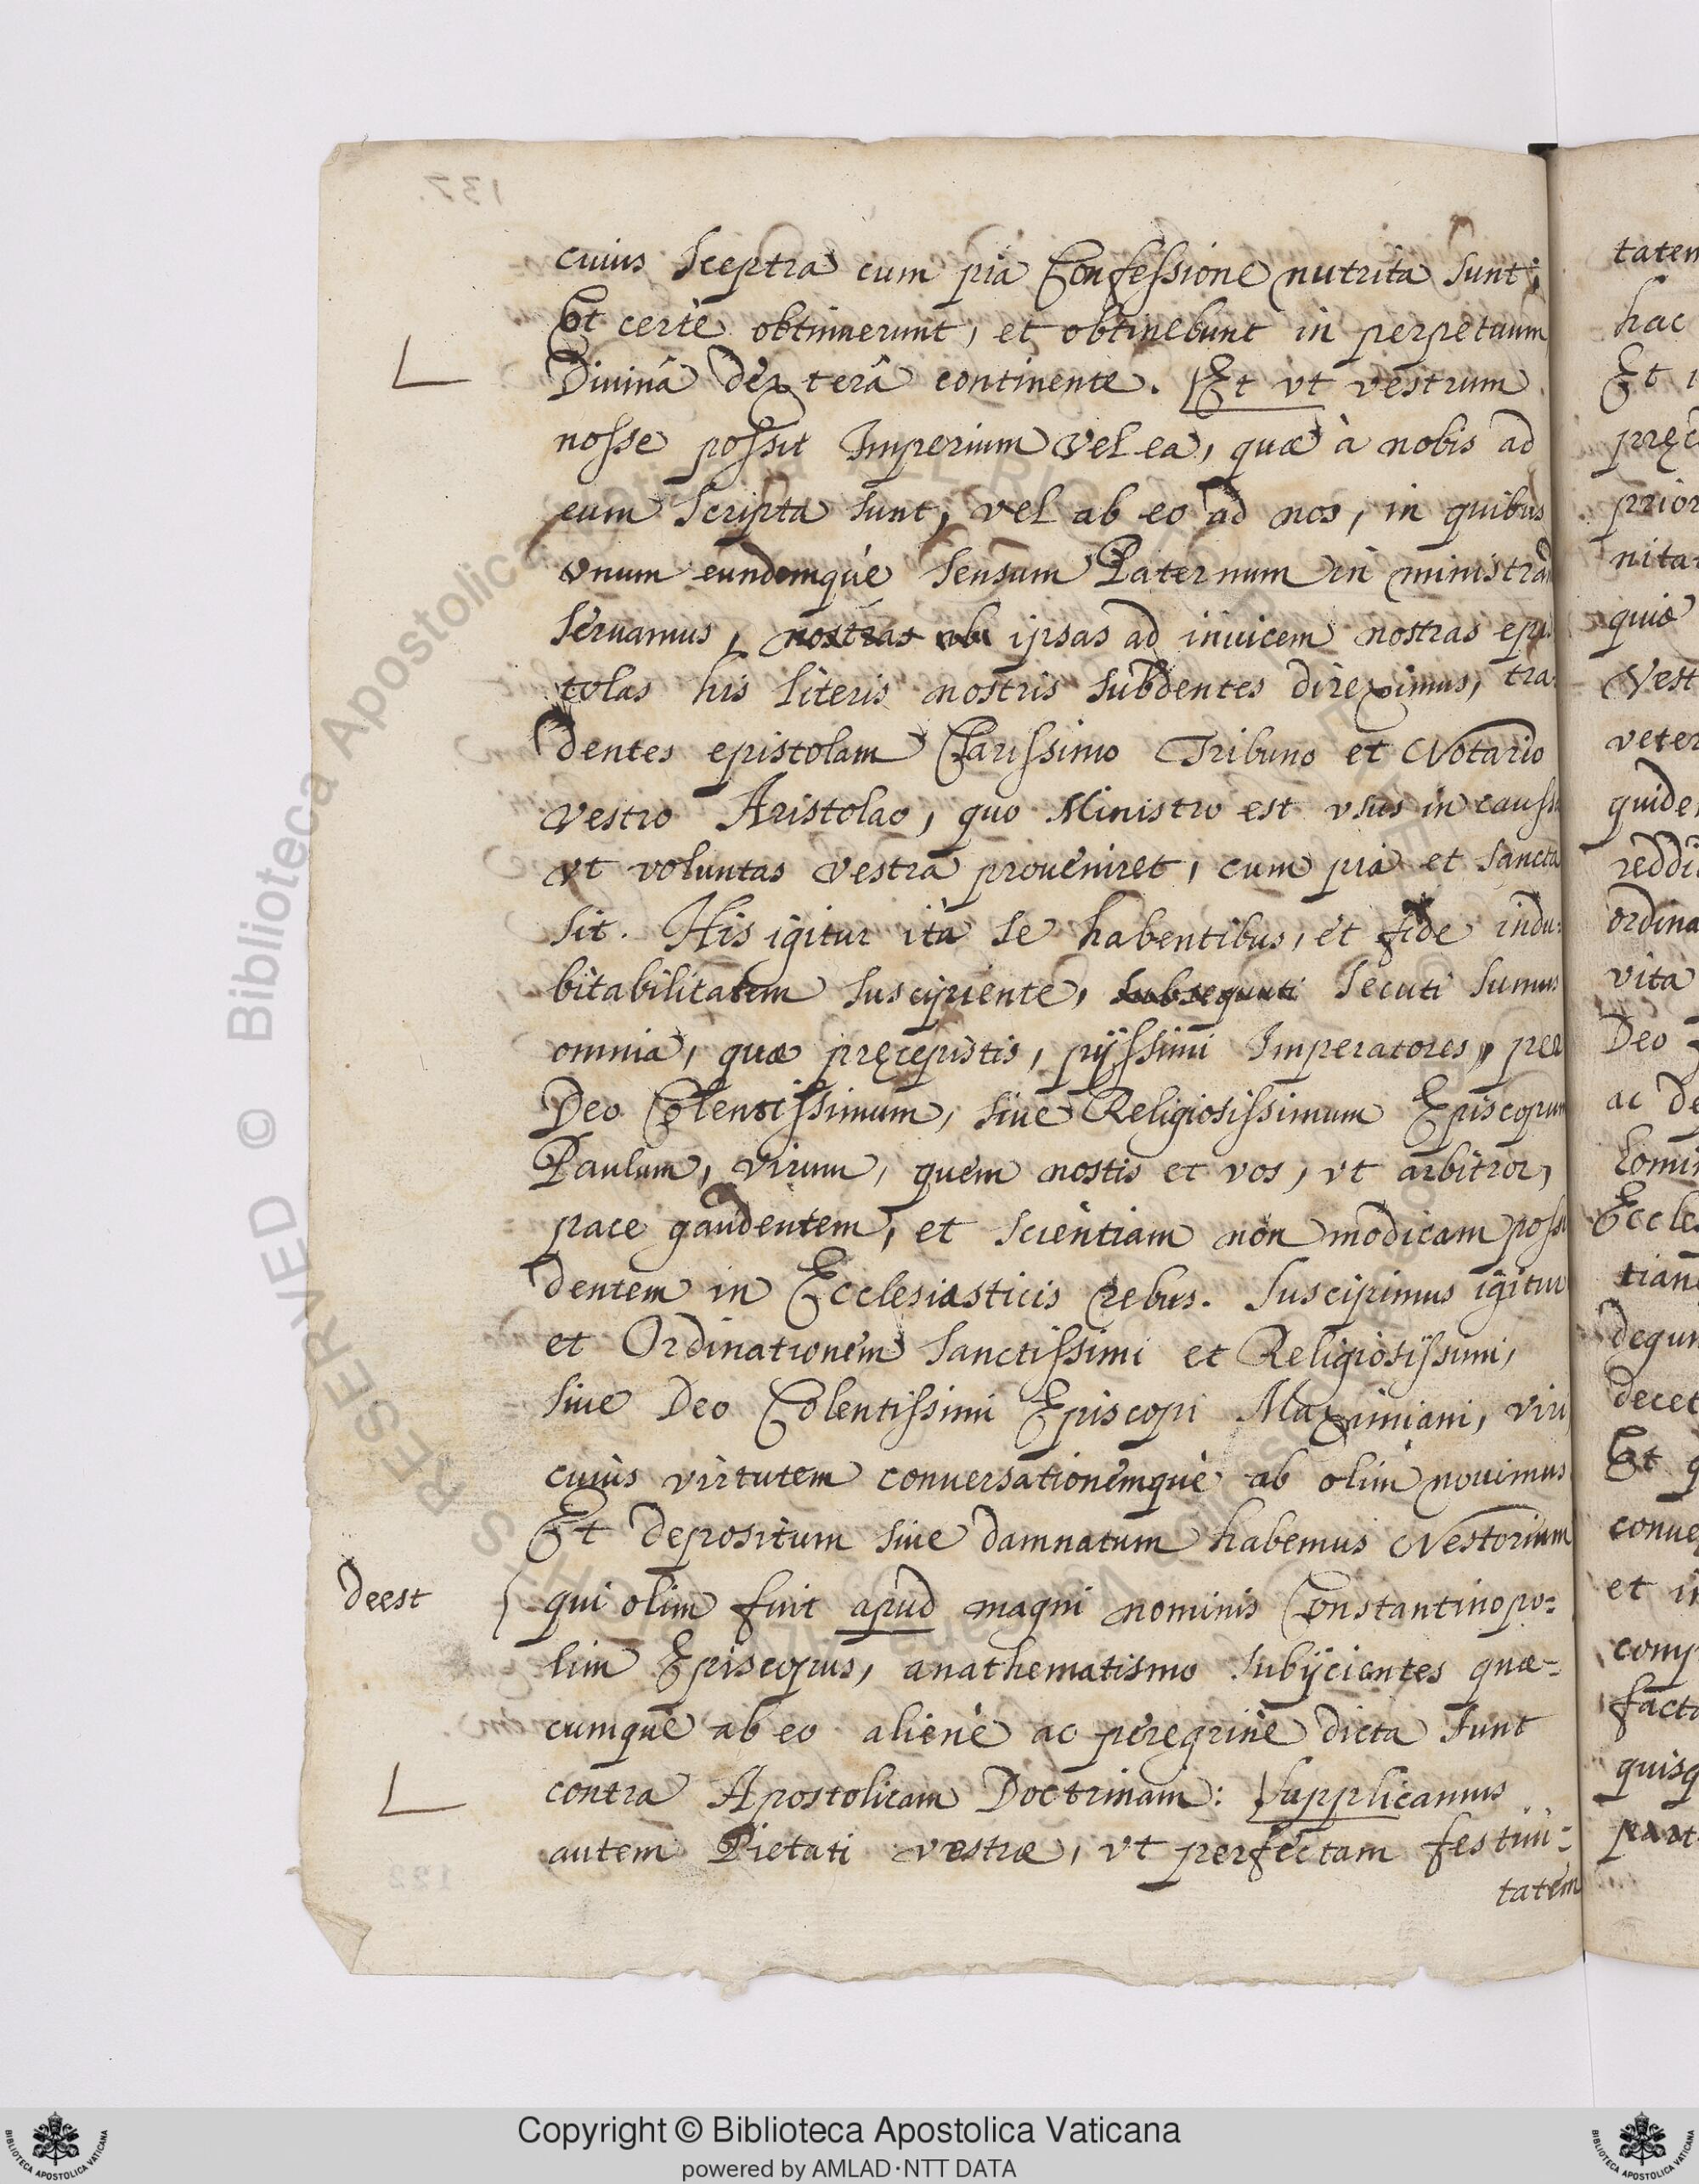 cuius Sceptra cum pia Confessione nutrita sunt;
Et certè obtinuerunt, et obtinebunt in perpetuum
Diuinâ dexterâ continente. Et vt vestrum
nosse possit Imperium vel ea, quæ à nobis ad
eum scripta sunt, vel ab eo ad nos, in quibus
vnum eundemquè sensum Paternum in ministrãdo
seruamus, nostras ipsas ad inuicem nostras epis
tolas his literis nostris subdentes direximus, tra:
dentes epistolam Clarissimo Tribuno et Notario
vestro Aristolao, quo Ministro est vsus in caussa
vt voluntas vestra proueniret, cum pia et sancta
sit. His igitur ità se habentibus, et fide indu:
bitabilitatem suscipiente, subsequuti secuti sumus
omnia, quæ pręcepistis, pijssimi Imperatores, per
Deo Colentissimum, siue Religiosissimum Episcopum
Paulum, virum, quem nostis et vos, vt arbitror,
pace gaudentem, et scientiam non modicam possi
dentem in Ecclesiasticis rebus. Suscipimus igitur
et Ordinationem Sanctissimi et Religiosissimi,
siue Deo Colentissimi Episcopi Maximiani, viri
cuius virtutem conuersationemquè ab olim nouimus
Et depositum siue damnatum habemus Nestorium
deest
qui olim fuit apud magni nominis Constantinopo=
lim Episcopus, anathematismo subijcientes quæ=
cumquè ab eo alienè ac peregrinè dicta sunt
contra Apostolicam Doctrinam: supplicamus
autem Pietati vestræ, vt perfectam festiui=
tatem
tatem
hac
Et
prior
quiæ
Vest
veter
ordina
vita
Deo
ac
decet
Et q
et
quisq
Copyright © Biblioteca Apostolica Vaticana
powered by AMLAD·NTT DATA
BIBLIOTECA APOSTOLICA VATICANA
BIBLIOTECA APOSTOLICA VATICANA